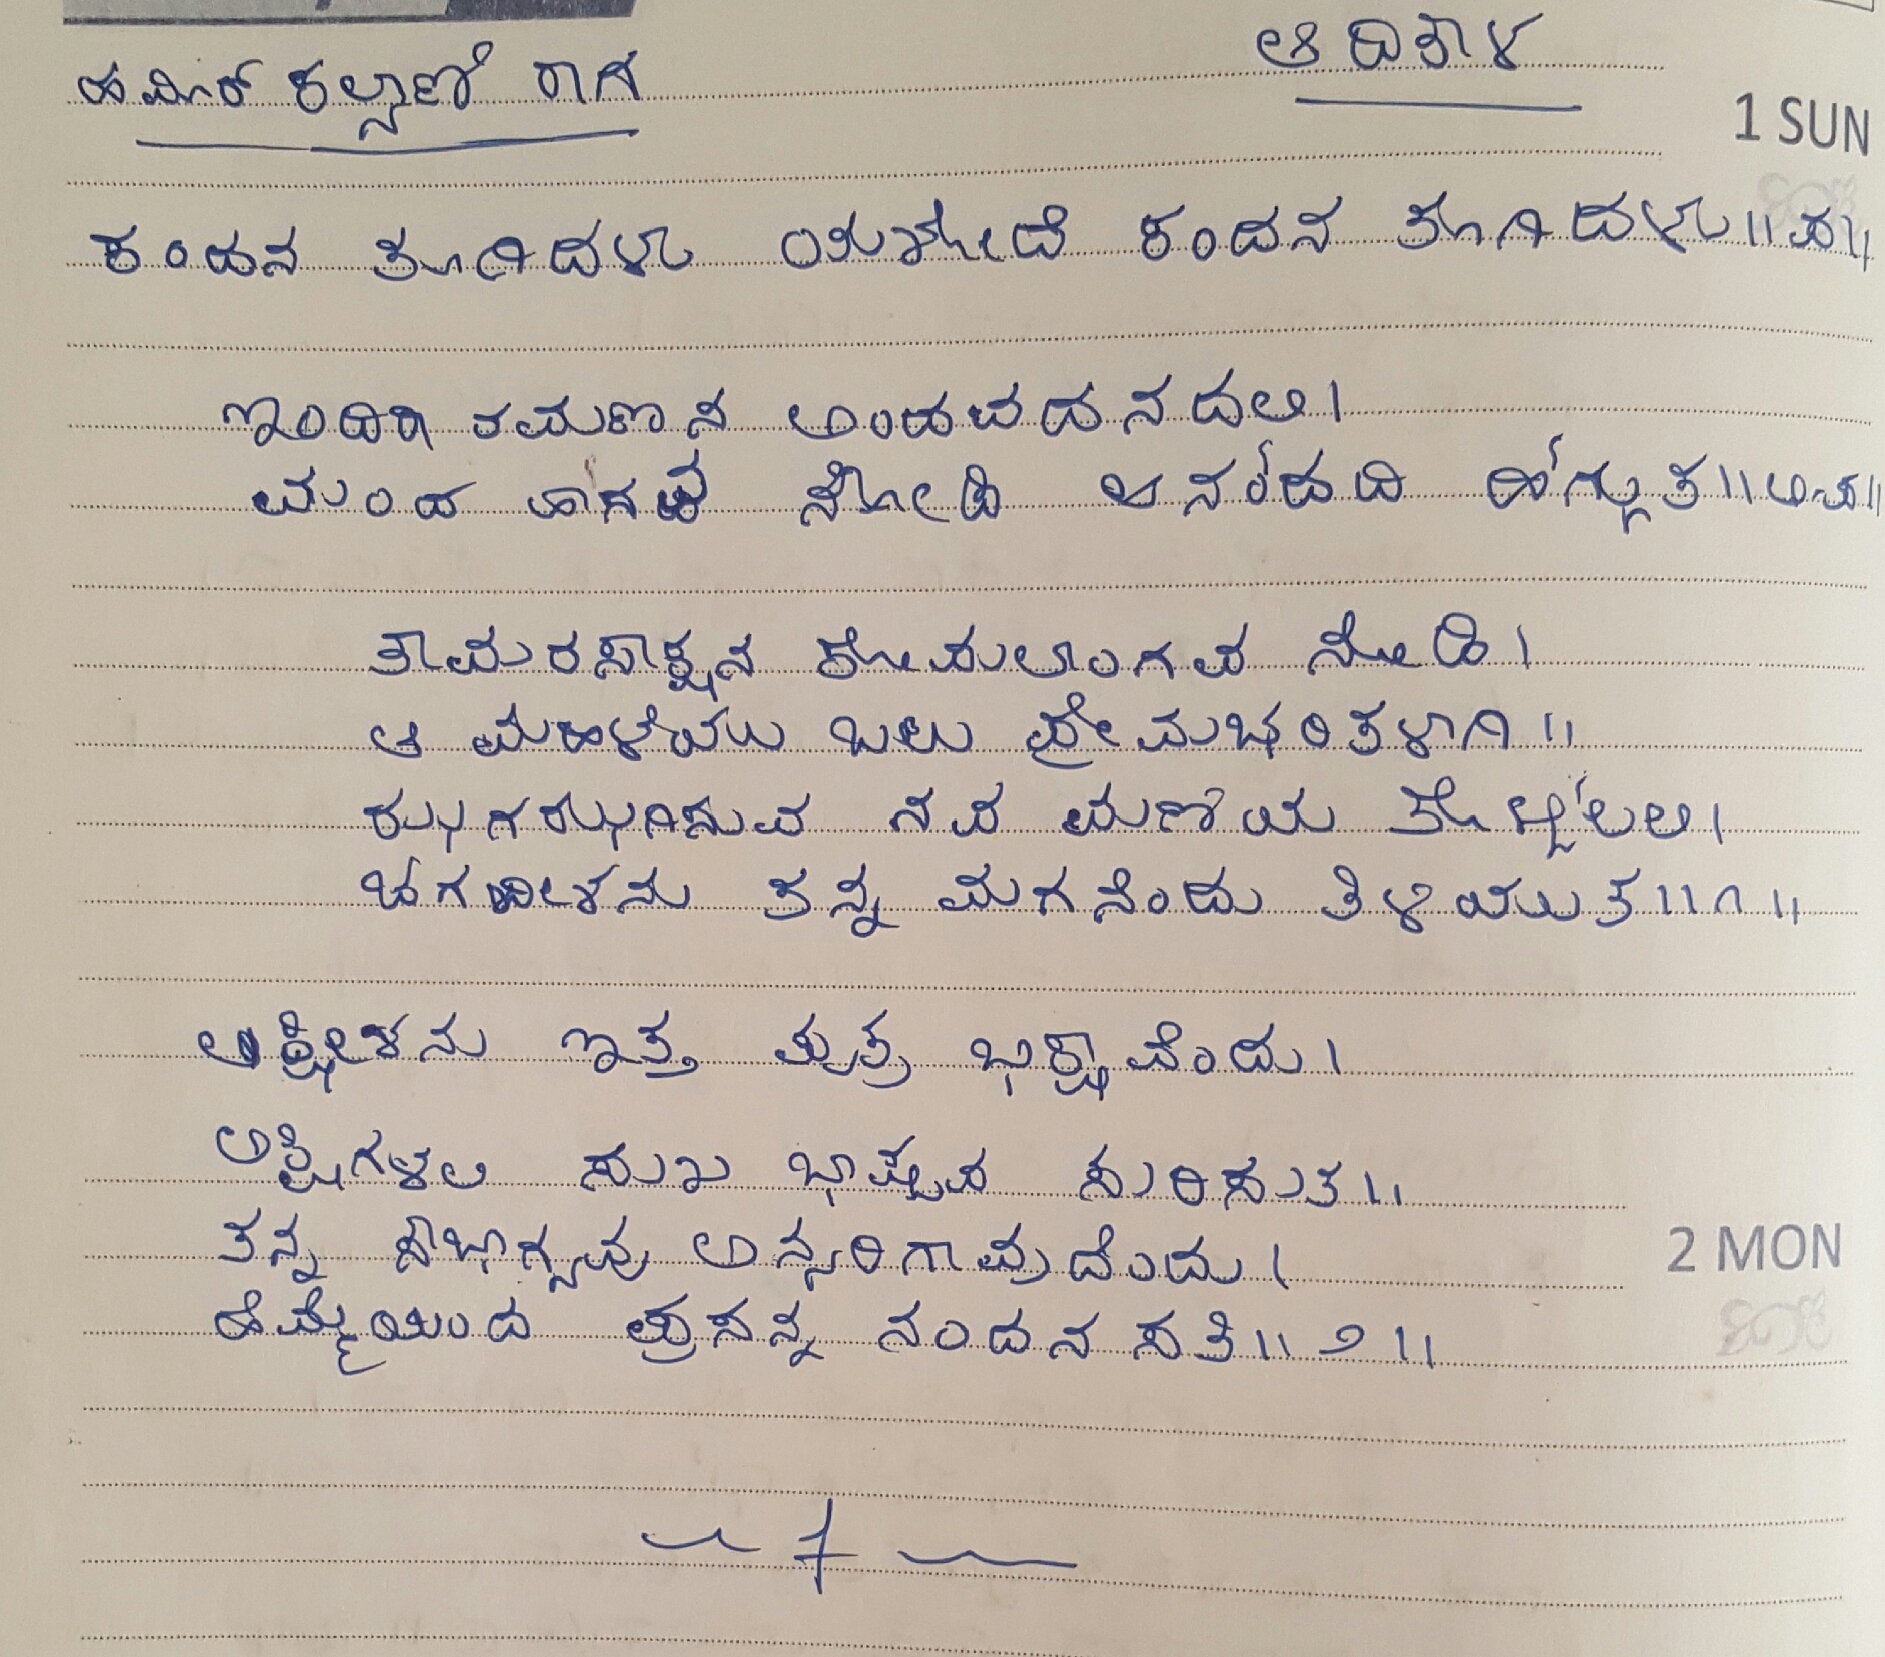 ಹಮೀರ್ ಕಲ್ಯಾಣಿ ರಾಗ ಆದಿತಾಳ
1 SUN
ಕಂದನ ತೂಗಿದಳು ಯಶೋದೆ ಕಂದನ ತೂಗಿದಳು ॥ಪ॥
ಇಂದಿರಾ ರಮಣನ ಅಂದವದನದಲಿ।
ಮಂದ ಹಾಸವ ನೋಡಿ ಆನಂದದಿ ಹಿಗ್ಗುತ ॥ಅ.ಪ॥
ತಾಮರಸಾಕ್ಷನ ಕೋಮಲಾಂಗವ ನೋಡಿ।
ಆ ಮಹಳೆಯು ಬಲು ಪ್ರೇಮಭರಿತಳಾಗಿ॥
ಝಗಝಗಿಸುವ ನವ ಮಣಿಯ ತೊಟ್ಟಿಲಲಿ।
ಜಗದೀಶನು ತನ್ನ ಮಗನೆಂದು ತಿಳಿಯುತ ॥೧॥
ಲಕ್ಷ್ಮೀಶನು ಇತ್ತ ಪುತ್ರ ಭಿಕ್ಷಾವೆಂದು।
ಅಕ್ಷಿಗಳಲಿ ಸುಖ ಭಾಷ್ಪವ ಸುರಿಸುತ॥
ತನ್ನ ಸೌಭಾಗ್ಯವು ಅನ್ಯರಿಗಾವುದೆಂದು।
2 MON
ಹೆಮ್ಮೆಯಿಂದ ಪ್ರಸನ್ನ ನಂದನ ಸತಿ ॥೨॥